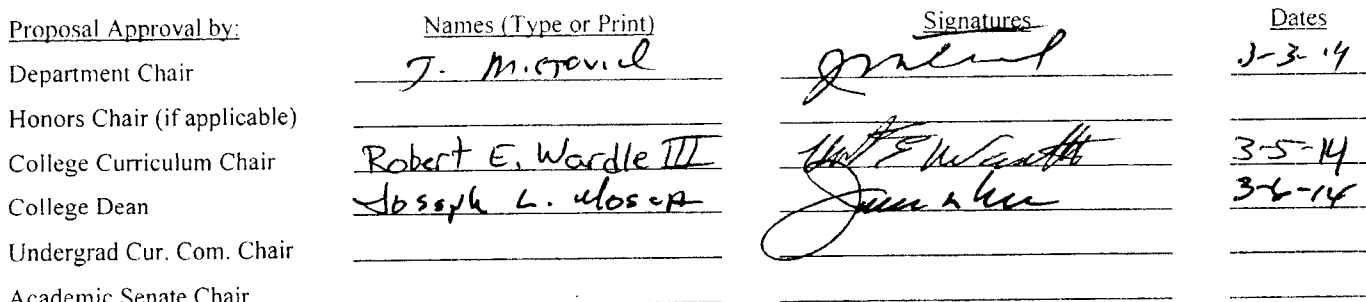 Proposal Approval by: Names (Type or Print) Signatures Dates
Department Chair J. 3-3-14
Honors Chair (if applicable)
College Curriculum Chair Robert E. Wardle III 3-5-14
College Dean Joseph L. 3-6-14
Undergrad Cur. Com. Chair
Academic Senate Chair